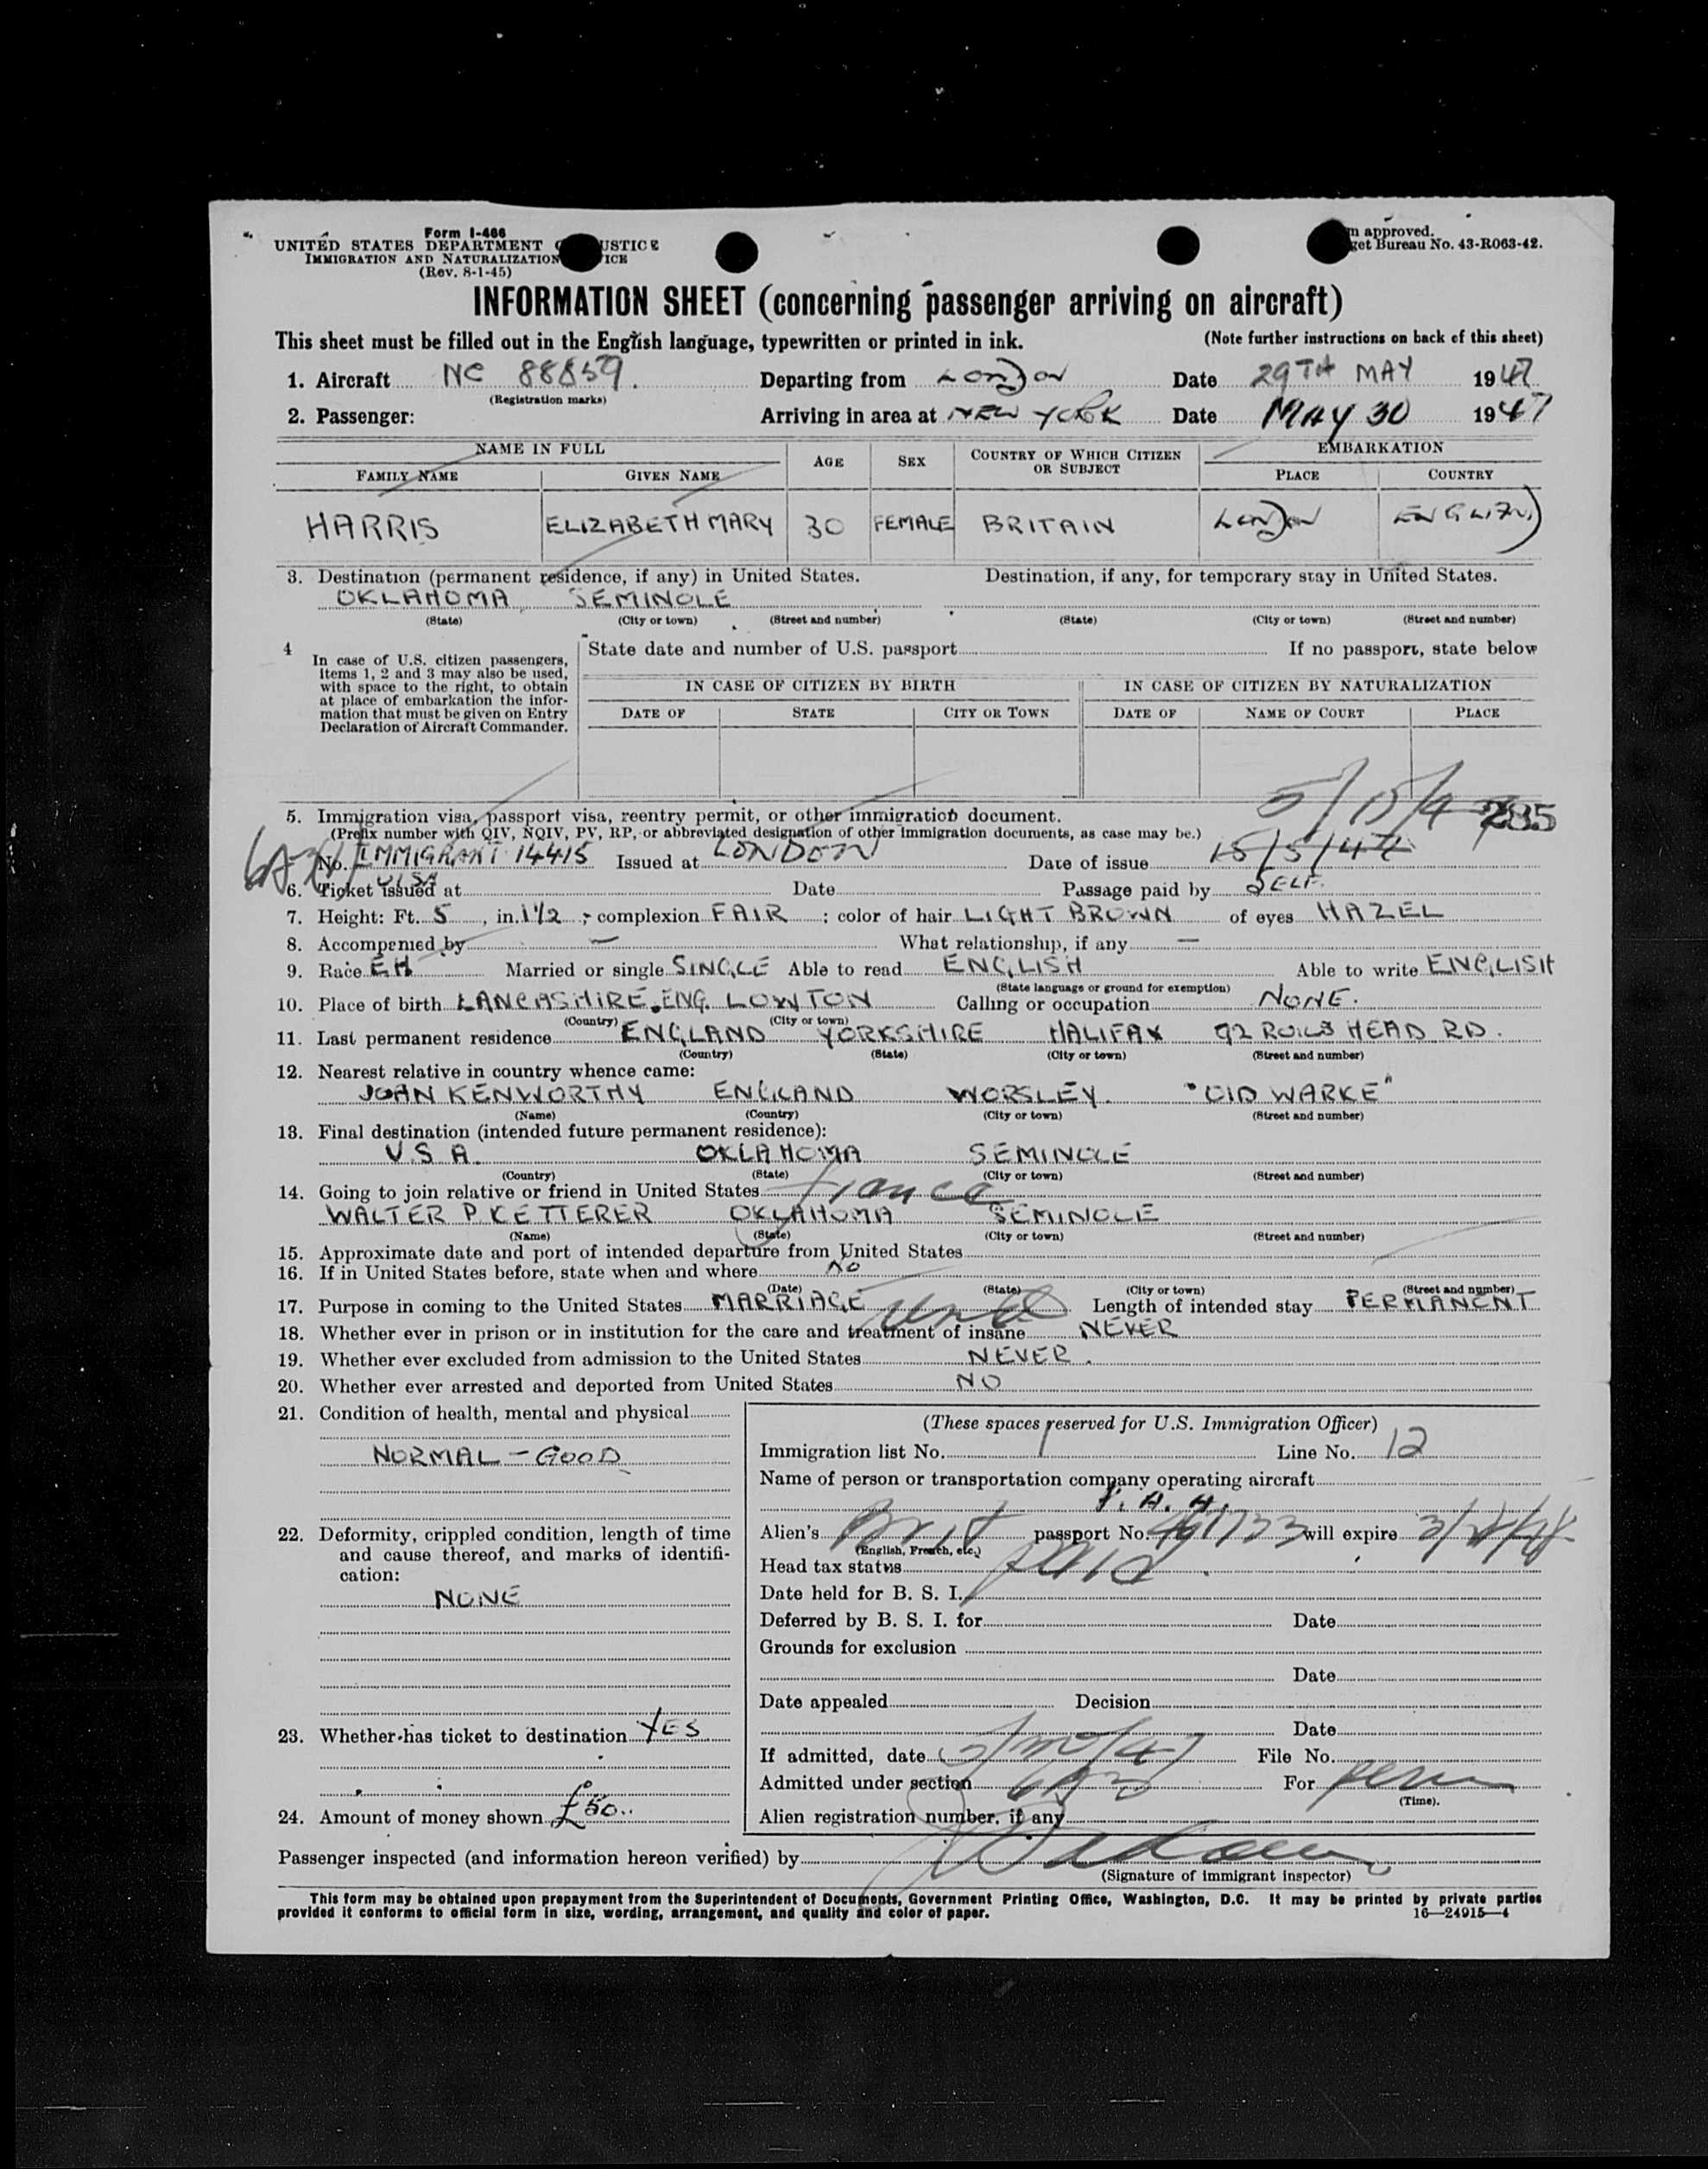 Form I-466
UNITED STATES DEPARTMENT USTICE
IMMIGRATION AND NATURALIZATION ICE
(Rev. 8-1-45)
m approved.
get Bureau No. 43-R063-42.
INFORMATION SHEET (concerning passenger arriving on aircraft)
This sheet must be filled out in the English language, typewritten or printed in ink. (Note further instructions on back of this sheet)
1. Aircraft NC 88859. Departing from LONDON Date 29TH MAY 1947
(Registration marks)
2. Passenger: Arriving in area at NEW YORK Date MAY 30 1947
NAME IN FULL AGE SEX COUNTRY OF WHICH CITIZEN OR SUBJECT EMBARKATION
FAMILY NAME GIVEN NAME PLACE COUNTRY
HARRIS ELIZABETH MARY 30 FEMALE BRITAIN LONDON ENGLAND
3. Destination (permanent residence, if any) in United States. Destination, if any, for temporary stay in United States.
OKLAHOMA SEMINOLE
(State) (City or town) (Street and number) (State) (City or town) (Street and number)
4 In case of U.S. citizen passengers, items 1, 2 and 3 may also be used, with space to the right, to obtain at place of embarkation the information that must be given on Entry Declaration of Aircraft Commander.
State date and number of U.S. passport If no passport, state below
IN CASE OF CITIZEN BY BIRTH IN CASE OF CITIZEN BY NATURALIZATION
DATE OF STATE CITY OR TOWN DATE OF NAME OF COURT PLACE
5. Immigration visa, passport visa, reentry permit, or other immigration document. 285
(Prefix number with QIV, NQIV, PV, RP, or abbreviated designation of other immigration documents, as case may be.)
No. IMMIGRANT 14415 Issued at LONDON Date of issue 15/5/47
VISA
6. Ticket issued at Date Passage paid by SELF.
7. Height: Ft. 5, in. 1 1/2; complexion FAIR; color of hair LIGHT BROWN of eyes HAZEL
8. Accompanied by — What relationship, if any —
9. Race EH Married or single SINGLE Able to read ENGLISH Able to write ENGLISH
(State language or ground for exemption)
10. Place of birth LANCASHIRE. ENG. LOWTON Calling or occupation NONE.
(Country) (City or town)
11. Last permanent residence ENGLAND YORKSHIRE HALIFAX 92 ROILS HEAD RD.
(Country) (State) (City or town) (Street and number)
12. Nearest relative in country whence came:
JOAN KENWORTHY ENGLAND WORSLEY. "OLD WARKE"
(Name) (Country) (City or town) (Street and number)
13. Final destination (intended future permanent residence):
U.S.A. OKLAHOMA SEMINOLE
(Country) (State) (City or town) (Street and number)
14. Going to join relative or friend in United States fiance
WALTER P. KETTERER OKLAHOMA SEMINOLE
(Name) (State) (City or town) (Street and number)
15. Approximate date and port of intended departure from United States
16. If in United States before, state when and where NO
(Date) (State) (City or town) (Street and number)
17. Purpose in coming to the United States MARRIAGE Length of intended stay PERMANENT
18. Whether ever in prison or in institution for the care and treatment of insane NEVER
19. Whether ever excluded from admission to the United States NEVER.
20. Whether ever arrested and deported from United States NO
21. Condition of health, mental and physical
NORMAL - GOOD
22. Deformity, crippled condition, length of time and cause thereof, and marks of identification:
NONE
23. Whether has ticket to destination YES
24. Amount of money shown £50..
(These spaces reserved for U.S. Immigration Officer)
Immigration list No. 1 Line No. 12
Name of person or transportation company operating aircraft
P. A. A.
Alien's Brit passport No. will expire
(English, French, etc.)
Head tax status paid
Date held for B. S. I.
Deferred by B. S. I. for Date
Grounds for exclusion
Date
Date appealed Decision
Date
If admitted, date File No.
Admitted under section For perm
(Time).
Alien registration number, if any
Passenger inspected (and information hereon verified) by
(Signature of immigrant inspector)
This form may be obtained upon prepayment from the Superintendent of Documents, Government Printing Office, Washington, D.C. It may be printed by private parties
provided it conforms to official form in size, wording, arrangement, and quality and color of paper. 16—24915-4